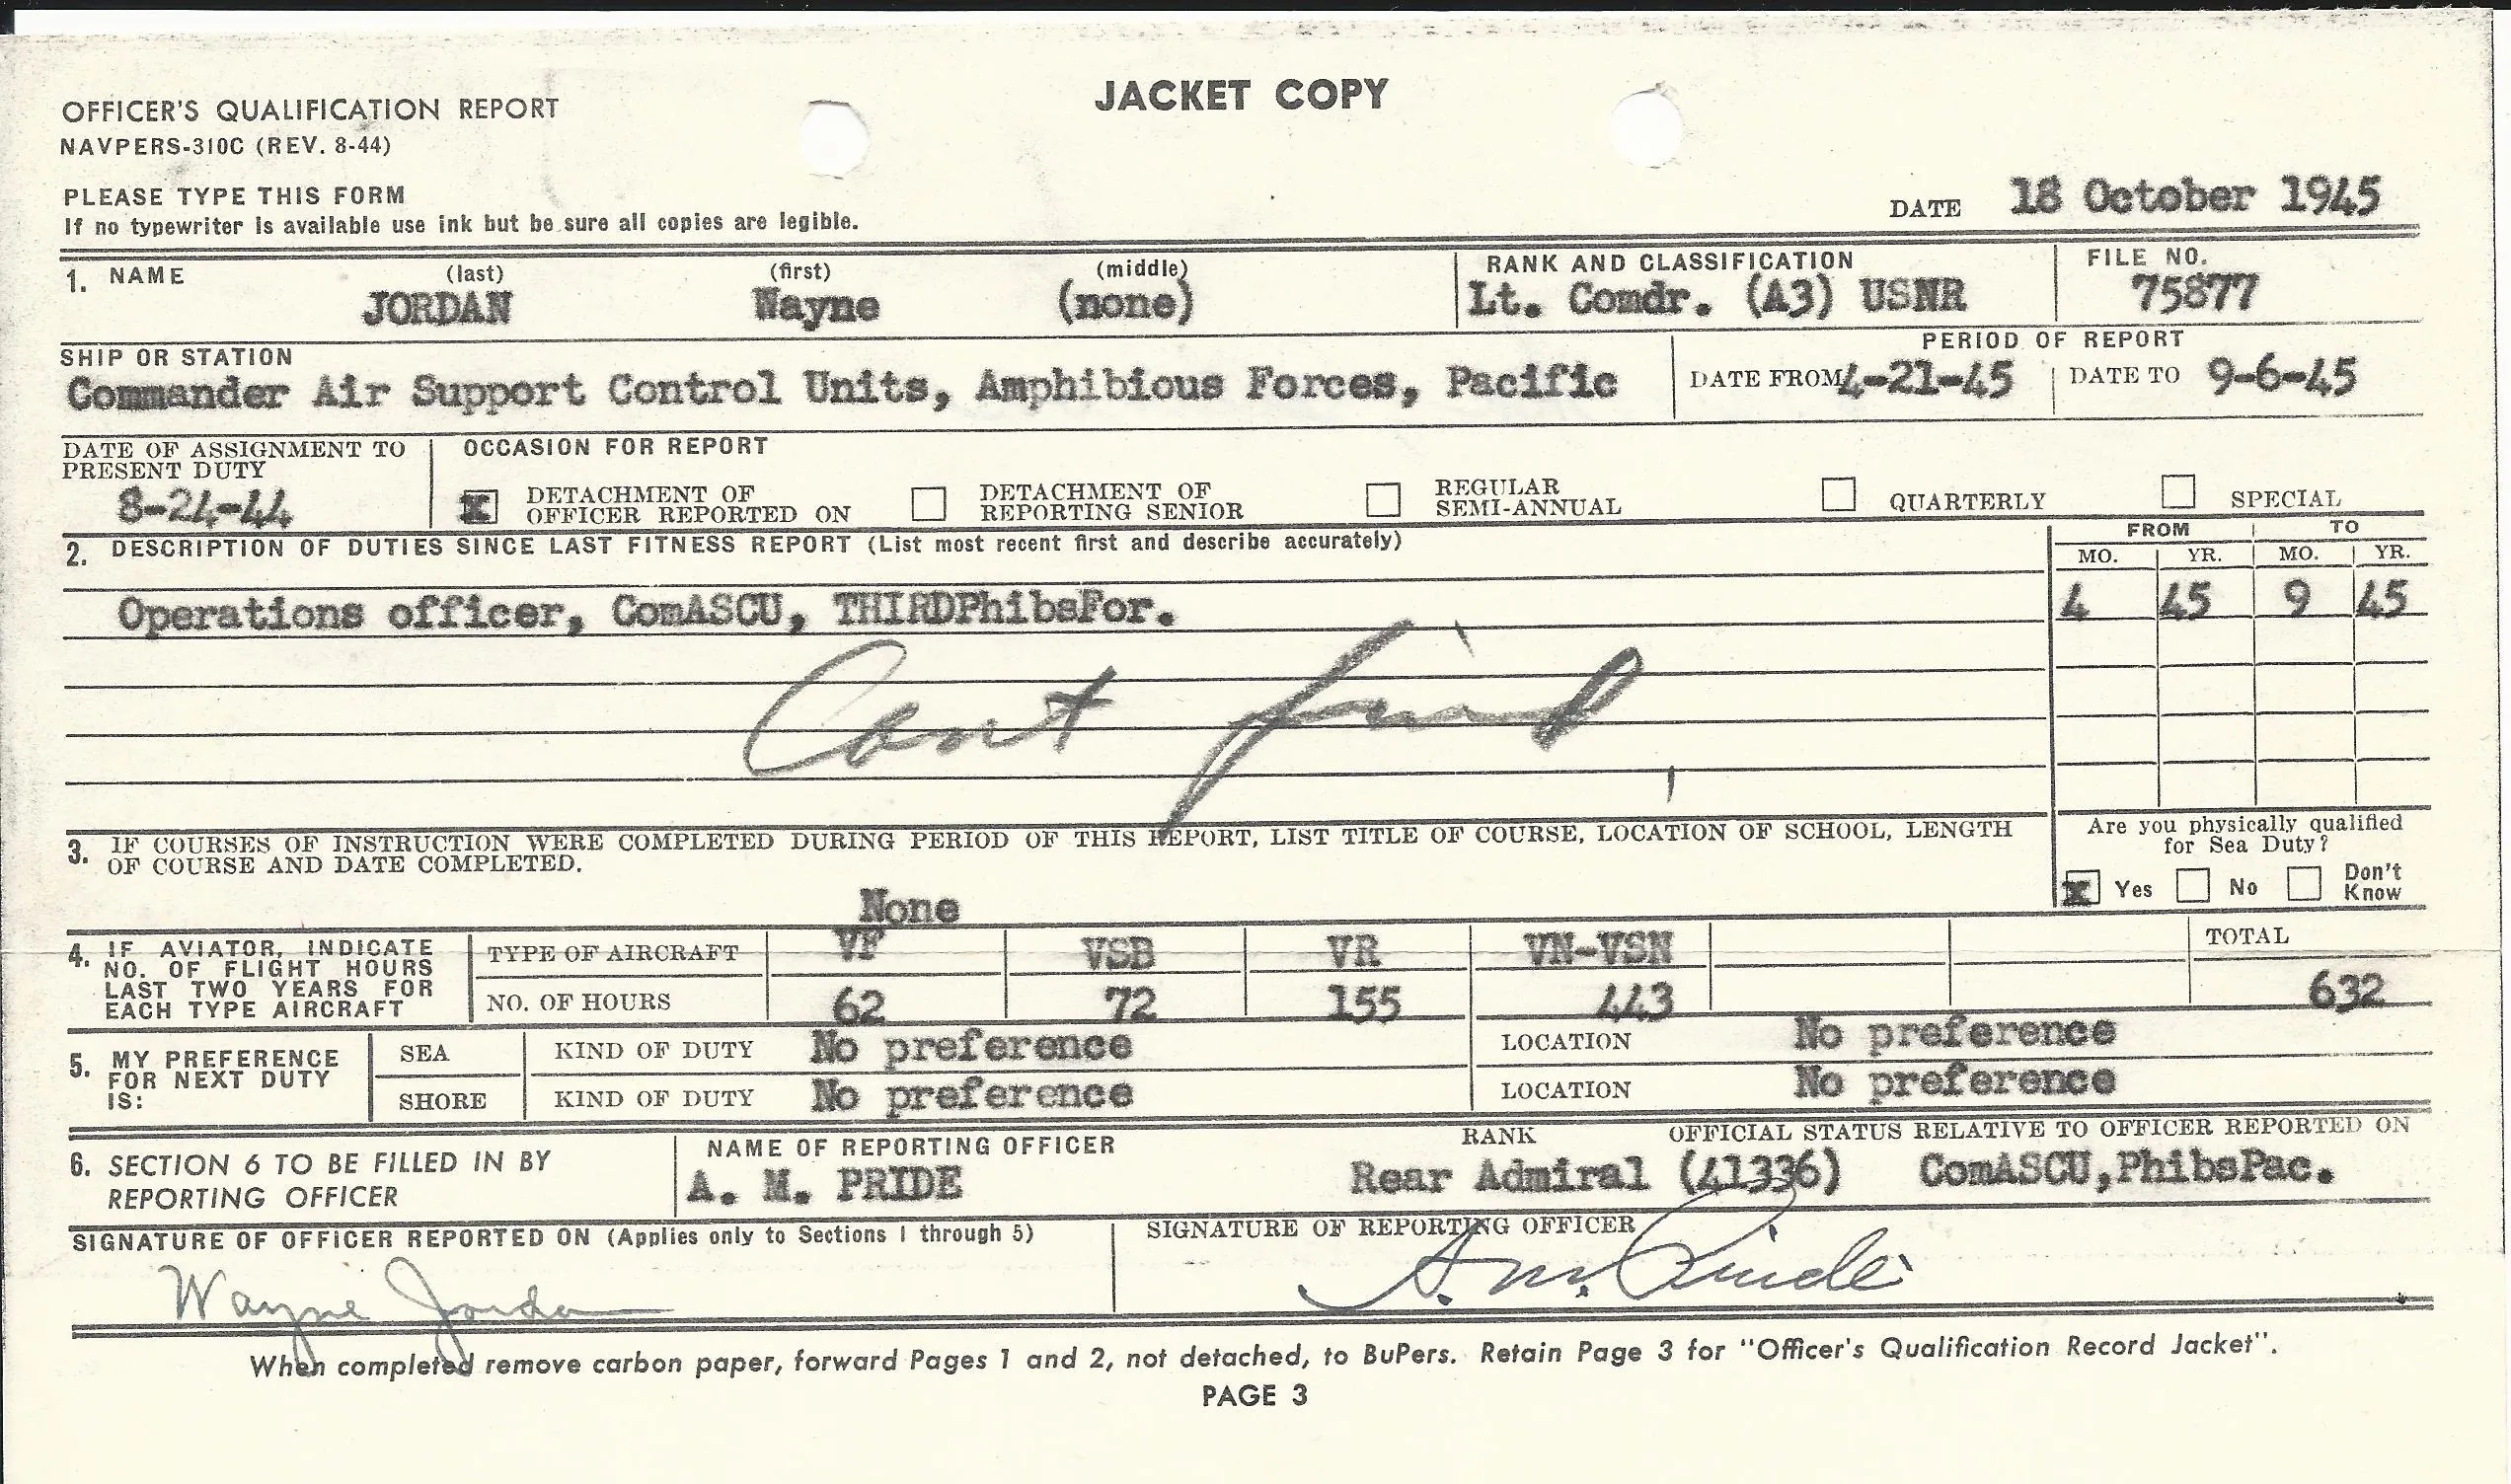 JACKET COPY
OFFICER'S QUALIFICATION REPORT
NAVPERS-310C (REV. 8-44)
PLEASE TYPE THIS FORM
If no typewriter is available use ink but be sure all copies are legible.
DATE 18 October 1945
1. NAME (last) (first) (middle)
JORDAN Wayne (none)
RANK AND CLASSIFICATION
Lt. Comdr. (A3) USNR
FILE NO.
75877
SHIP OR STATION
Commander Air Support Control Units, Amphibious Forces, Pacific
PERIOD OF REPORT
DATE FROM 4-21-45 DATE TO 9-6-45
DATE OF ASSIGNMENT TO
PRESENT DUTY
8-24-44
OCCASION FOR REPORT
X DETACHMENT OF
OFFICER REPORTED ON
DETACHMENT OF
REPORTING SENIOR
REGULAR
SEMI-ANNUAL
QUARTERLY
SPECIAL
2. DESCRIPTION OF DUTIES SINCE LAST FITNESS REPORT (List most recent first and describe accurately)
FROM TO
MO. YR. MO. YR.
Operations officer, ComASCU, THIRDPhibsFor.
4 45 9 45
Cant find
3. IF COURSES OF INSTRUCTION WERE COMPLETED DURING PERIOD OF THIS REPORT, LIST TITLE OF COURSE, LOCATION OF SCHOOL, LENGTH
OF COURSE AND DATE COMPLETED.
None
Are you physically qualified
for Sea Duty?
X Yes No Don't
Know
4. IF AVIATOR, INDICATE
NO. OF FLIGHT HOURS
LAST TWO YEARS FOR
EACH TYPE AIRCRAFT
TYPE OF AIRCRAFT VF VSB VR VN-VSN TOTAL
NO. OF HOURS 62 72 155 443 632
5. MY PREFERENCE
FOR NEXT DUTY
IS:
SEA KIND OF DUTY No preference LOCATION No preference
SHORE KIND OF DUTY No preference LOCATION No preference
6. SECTION 6 TO BE FILLED IN BY
REPORTING OFFICER
NAME OF REPORTING OFFICER
A. M. PRIDE
RANK
Rear Admiral (41336)
OFFICIAL STATUS RELATIVE TO OFFICER REPORTED ON
ComASCU,PhibsPac.
SIGNATURE OF OFFICER REPORTED ON (Applies only to Sections 1 through 5)
Wayne Jordan
SIGNATURE OF REPORTING OFFICER
A. M. Pride
When completed remove carbon paper, forward Pages 1 and 2, not detached, to BuPers. Retain Page 3 for "Officer's Qualification Record Jacket".
PAGE 3